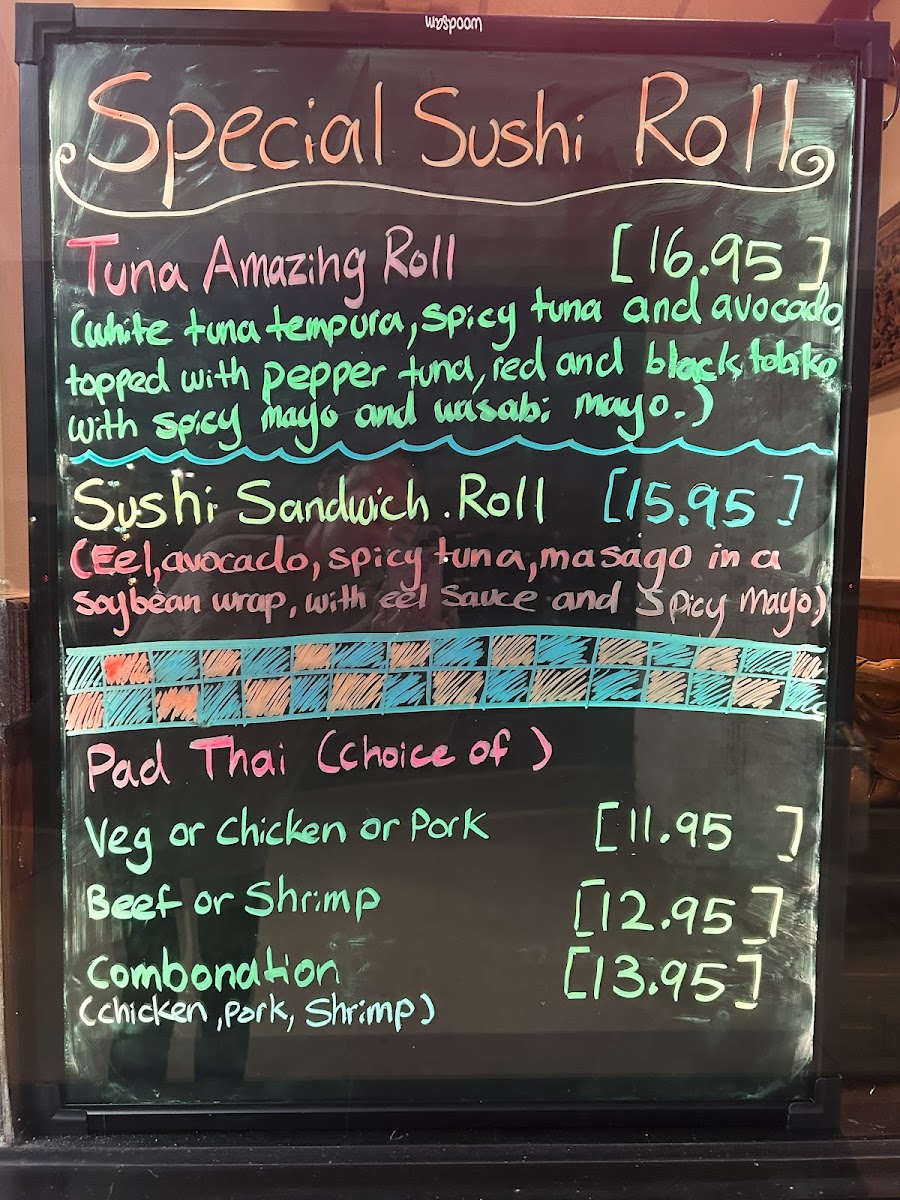 woodsam
Special Sushi Roll
Tuna Amazing Roll [16.95]
(white tuna tempura, spicy tuna and avocado,
topped with pepper tuna, red and black tobiko
with spicy mayo and wasabi mayo.)
Sushi Sandwich.Roll [15.95]
(Eel, avocado, spicy tuna, masago in a
soybean wrap, with eel Sauce and Spicy mayo)
Pad Thai (choice of )
Veg or chicken or Pork [11.95 ]
Beef or Shrimp [12.95]
Combonation [13.95]
(chicken, pork, Shrimp)